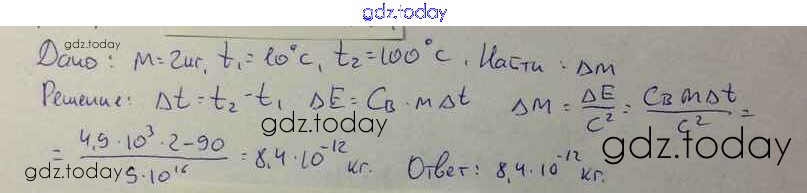 gdz.today
Дано: m=2кг, t₁=10°C, t₂=100°C. Найти: Δm
gdz.today
Решение: Δt=t₂-t₁ ΔE=Cв·mΔt Δm=ΔE/C²=CвmΔt/C²=
gdz.today
=4,9·10³·2-90/9·10¹⁶=8,4·10⁻¹² кг. Ответ: 8,4·10⁻¹² кг.
gdz.today gdz.today